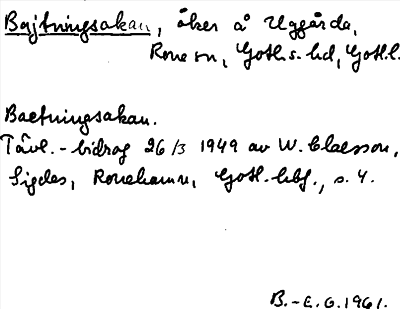 Bajtningsakan, åker å Uggårda,
Rone sn, Goth.s. hd, Gotl.l.
Baetningsakan.
Tävl.-bidrag 26/3 1949 av W. Claesson,
Sigdes, Ronehamn, Gotl. , s. 4.
B.-E.G. 1961.